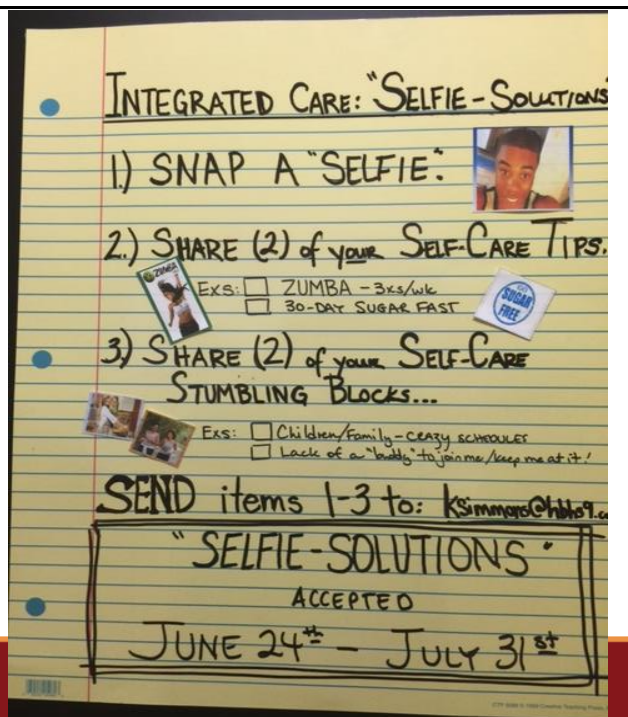 INTEGRATED CARE: "SELFIE-SOLUTIONS"
1.) SNAP A "SELFIE".
2.) SHARE (2) of your SELF-CARE TIPS.
ZUMBA
EXS: ZUMBA - 3xs/wk
30-DAY SUGAR FAST
SUGAR
FREE
3.) SHARE (2) of your SELF-CARE
STUMBLING BLOCKS...
Exs: Children/Family-CRAZY SCHEDULES
Lack of a "buddy" to join me/keep me at it!
SEND items 1-3 to:
"SELFIE-SOLUTIONS"
ACCEPTED
JUNE 24th - JULY 31st